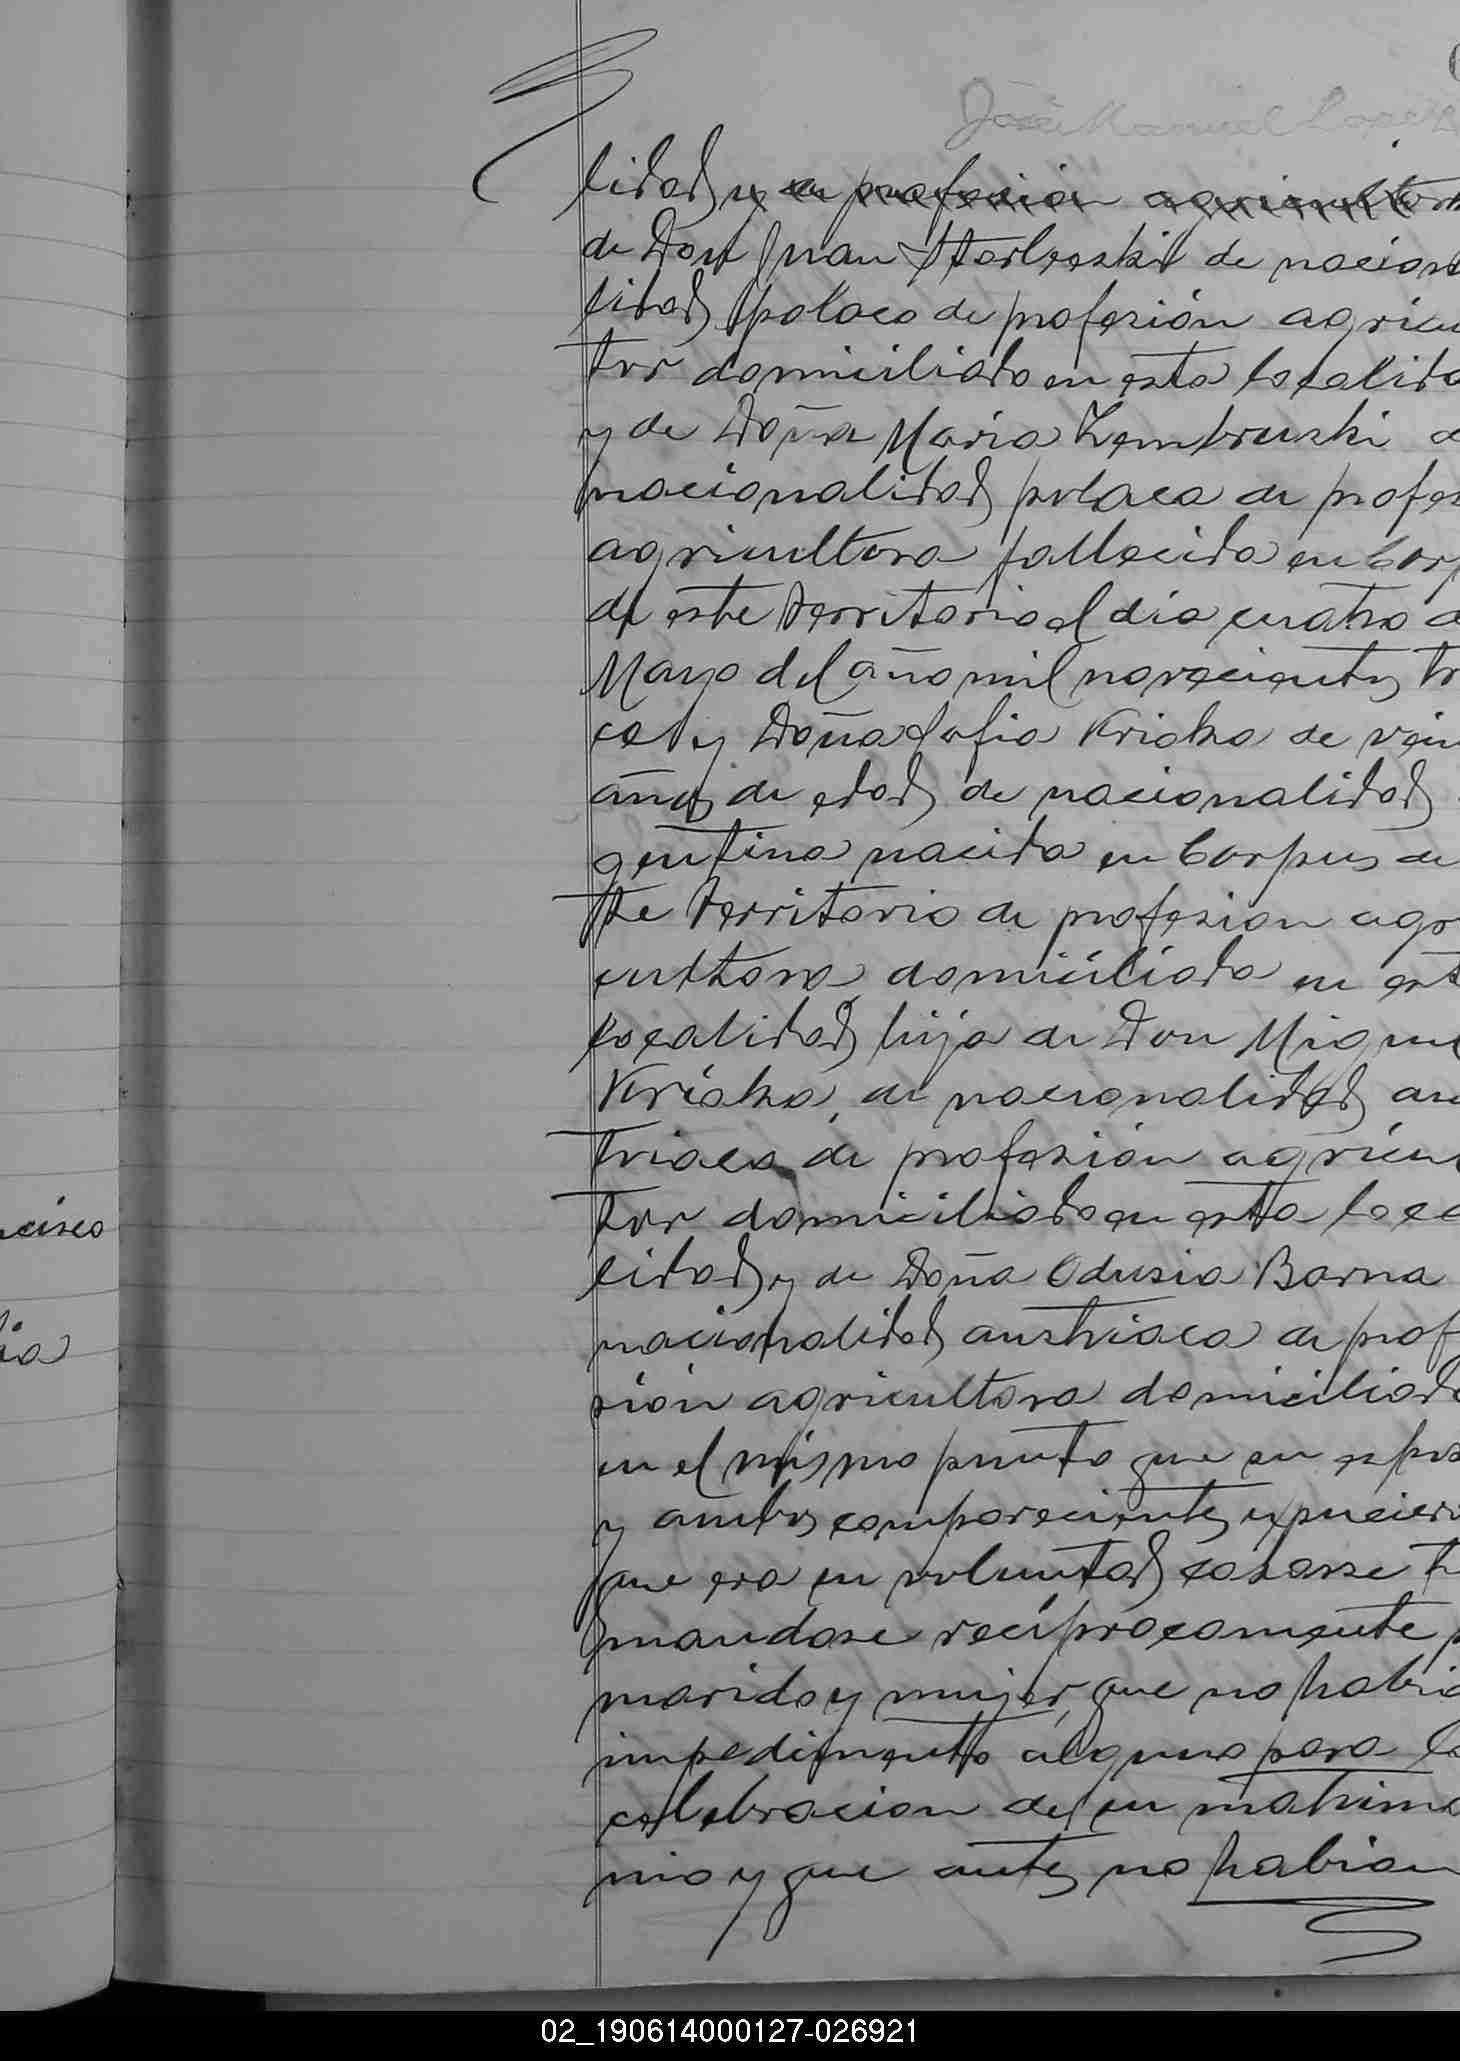 José Manuel Lope
lidad y de profesión agricultor
de Don Juan de nacion
lidad polaca de profesión agricu
tor domiciliado en esta localida
y de Doña Maria Zembruski d
nacionalidad polaca de profes
agricultora fallecida en Corp
de este territorio el dia cuatro d
Mayo del año mil novecientos tr
ce y Doña Sofia Kriska de vein
años de edad de nacionalidad
gentina nacida en Corpus de
te territorio de profesion agr
cultora domiciliada en est
localidad hija de Don Migue
Kriska, de nacionalidad au
triaca de profesión agricul
tor domiciliado en esta loca
lidad y de Doña Odusia Barna
nacionalidad austriaca de prof
sión agricultora domiciliad
en el mismo punto que su espos
y ambos comparecientes expuciero
que era su voluntad casarse t
mandose reciprocamente p
marido y mujer, que no habia
impedimento alguno para l
celebracion de su matrimo
nio y que antes no habian
ncisco
ia
02_190614000127-026921